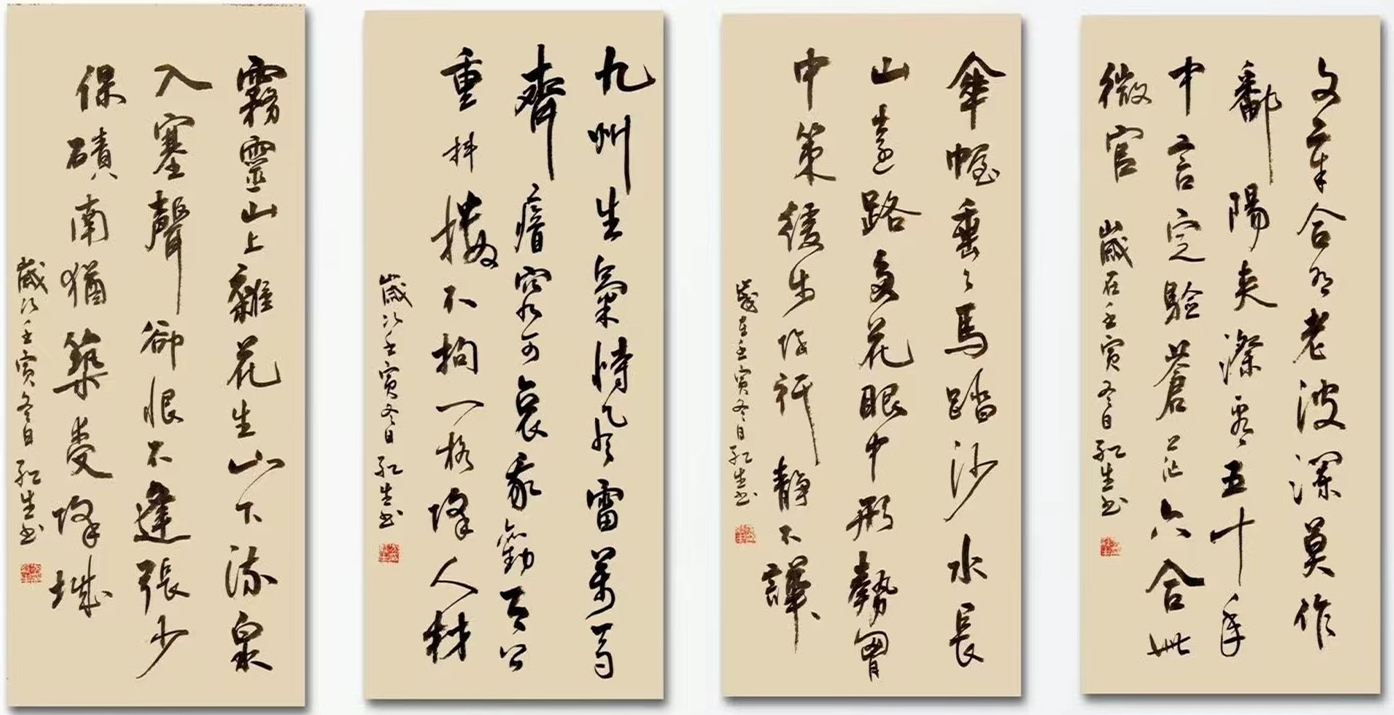 文章合有老波瀾莫作
鄱陽夾漈看五十年
中言定驗蒼茫六合此
微官
歲在壬寅冬日紅生書
傘幄垂々馬踏沙水長
山遠路多花眼中形勢胷
中策緩步徐行靜不譁
歲在壬寅冬日紅生書
九州生氣恃風雷萬馬
齊瘖究可哀我勸天公
重抖擻不拘一格降人材
歲次壬寅冬日紅生書
霧靈山上雜花生山下流泉
入塞聲卻恨不逢張少
保磧南猶築受降城
歲次壬寅冬日紅生書